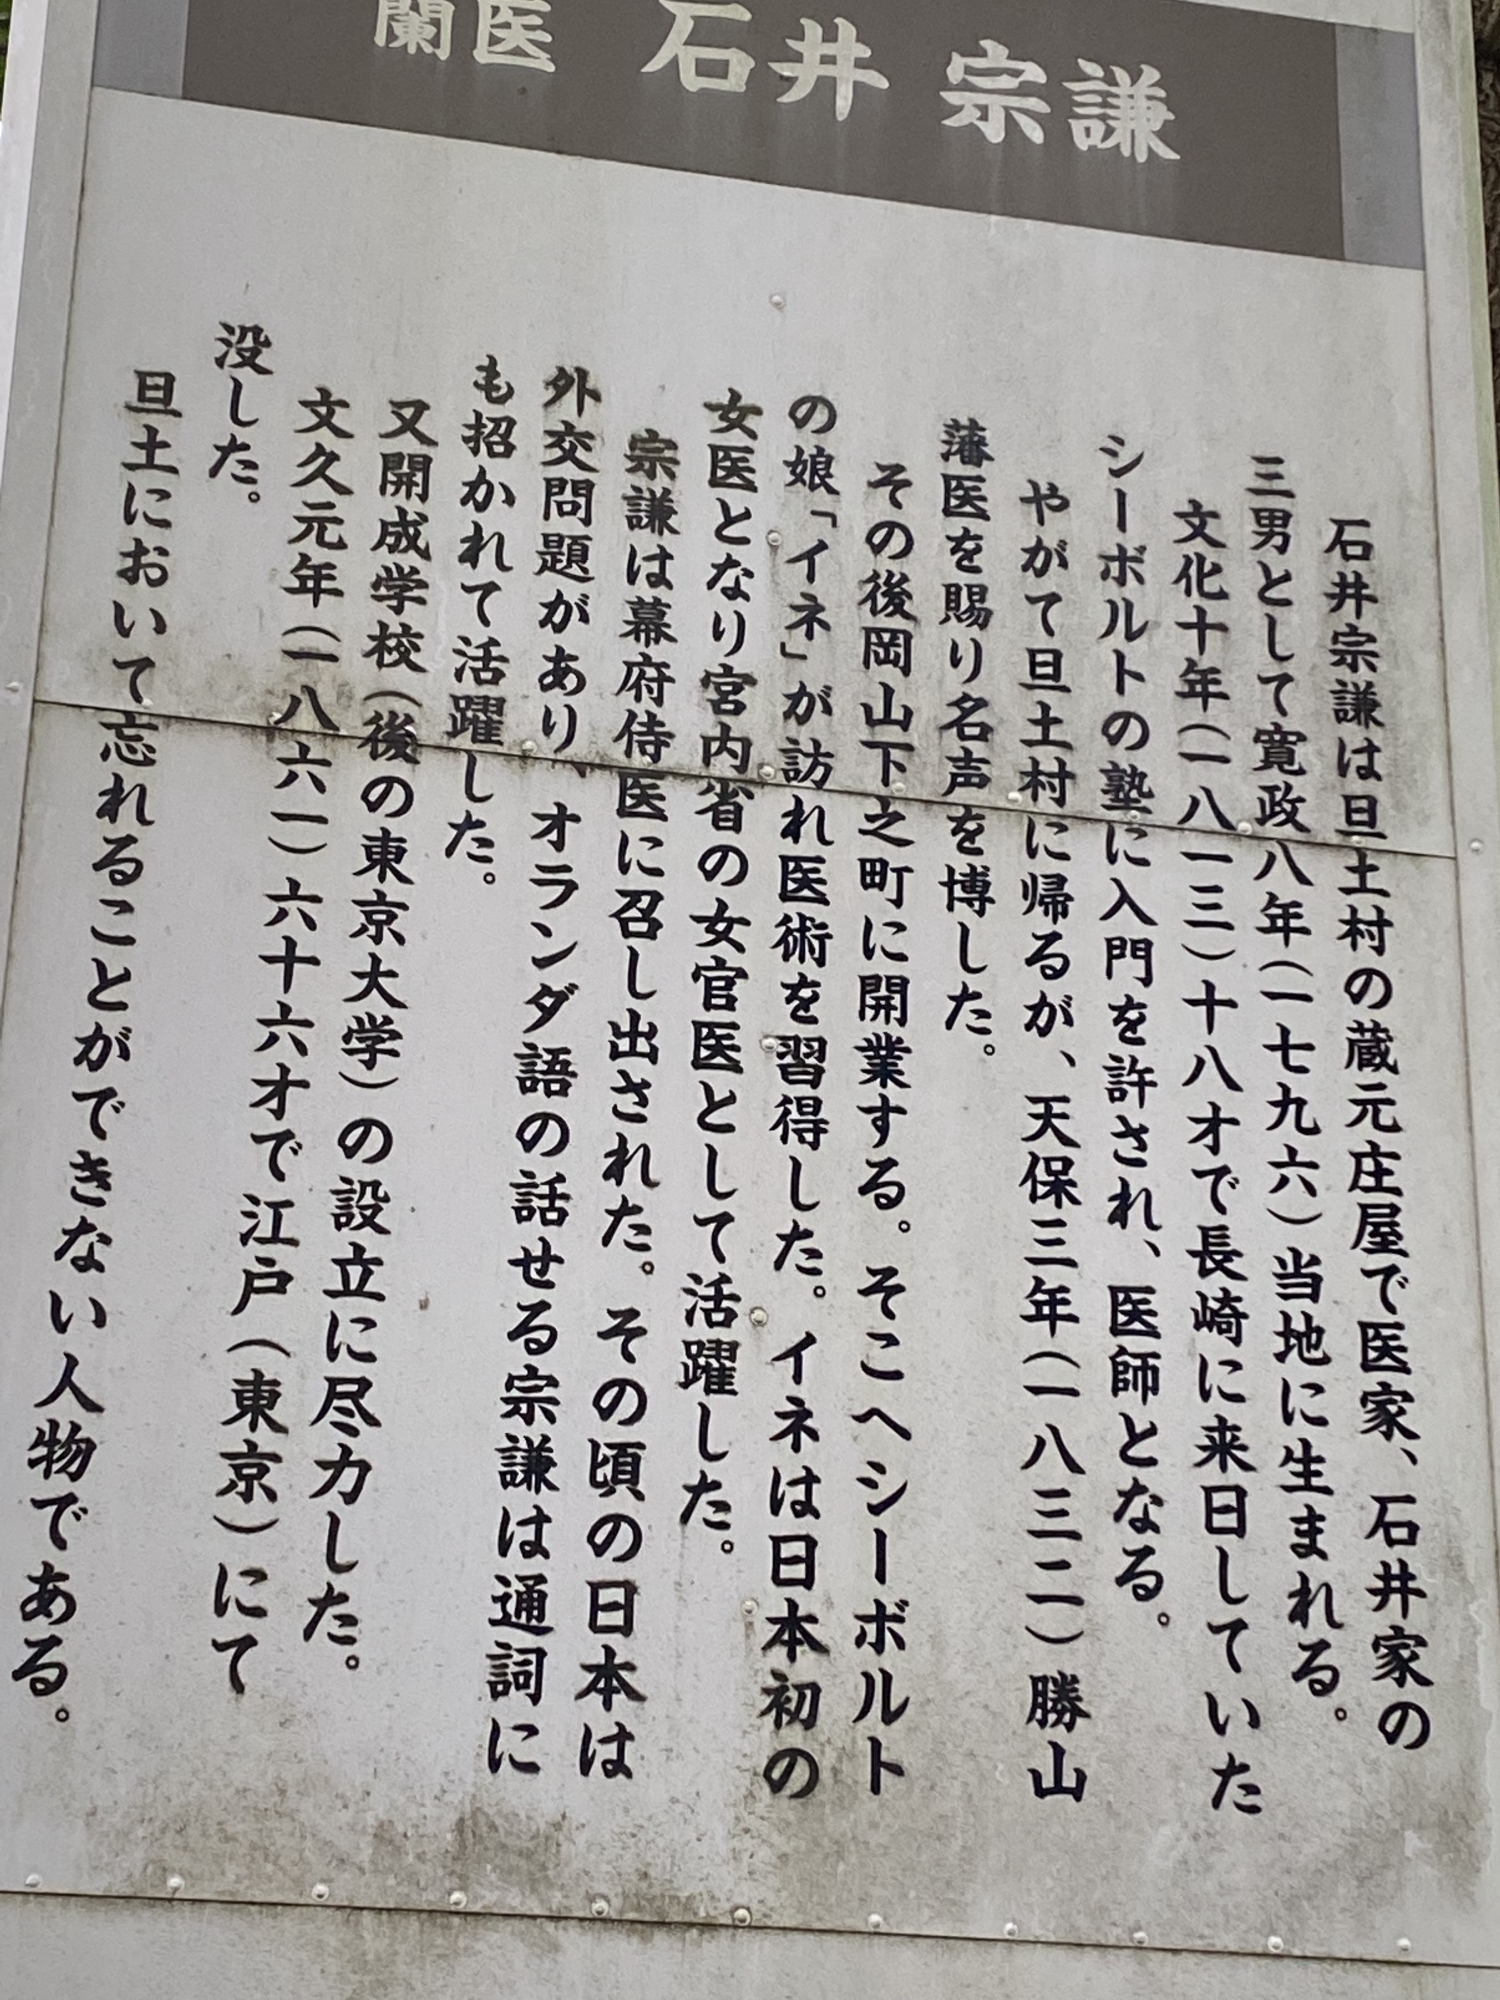 蘭医 石井 宗謙
石井宗謙は旦土村の蔵元庄屋で医家、石井家の
三男として寛政八年(一七九六)当地に生まれる。
文化十年(一八一三)十八才で長崎に来日していた
シーボルトの塾に入門を許され、医師となる。
やがて旦土村に帰るが、天保三年(一八三二)勝山
藩医を賜り名声を博した。
その後岡山下之町に開業する。そこへシーボルト
の娘「イネ」が訪れ医術を習得した。イネは日本初の
女医となり宮内省の女官医として活躍した。
宗謙は幕府侍医に召し出された。その頃の日本は
外交問題があり、オランダ語の話せる宗謙は通詞に
も招かれて活躍した。
又開成学校(後の東京大学)の設立に尽力した。
文久元年(一八六一)六十六才で江戸(東京)にて
没した。
旦土において忘れることができない人物である。